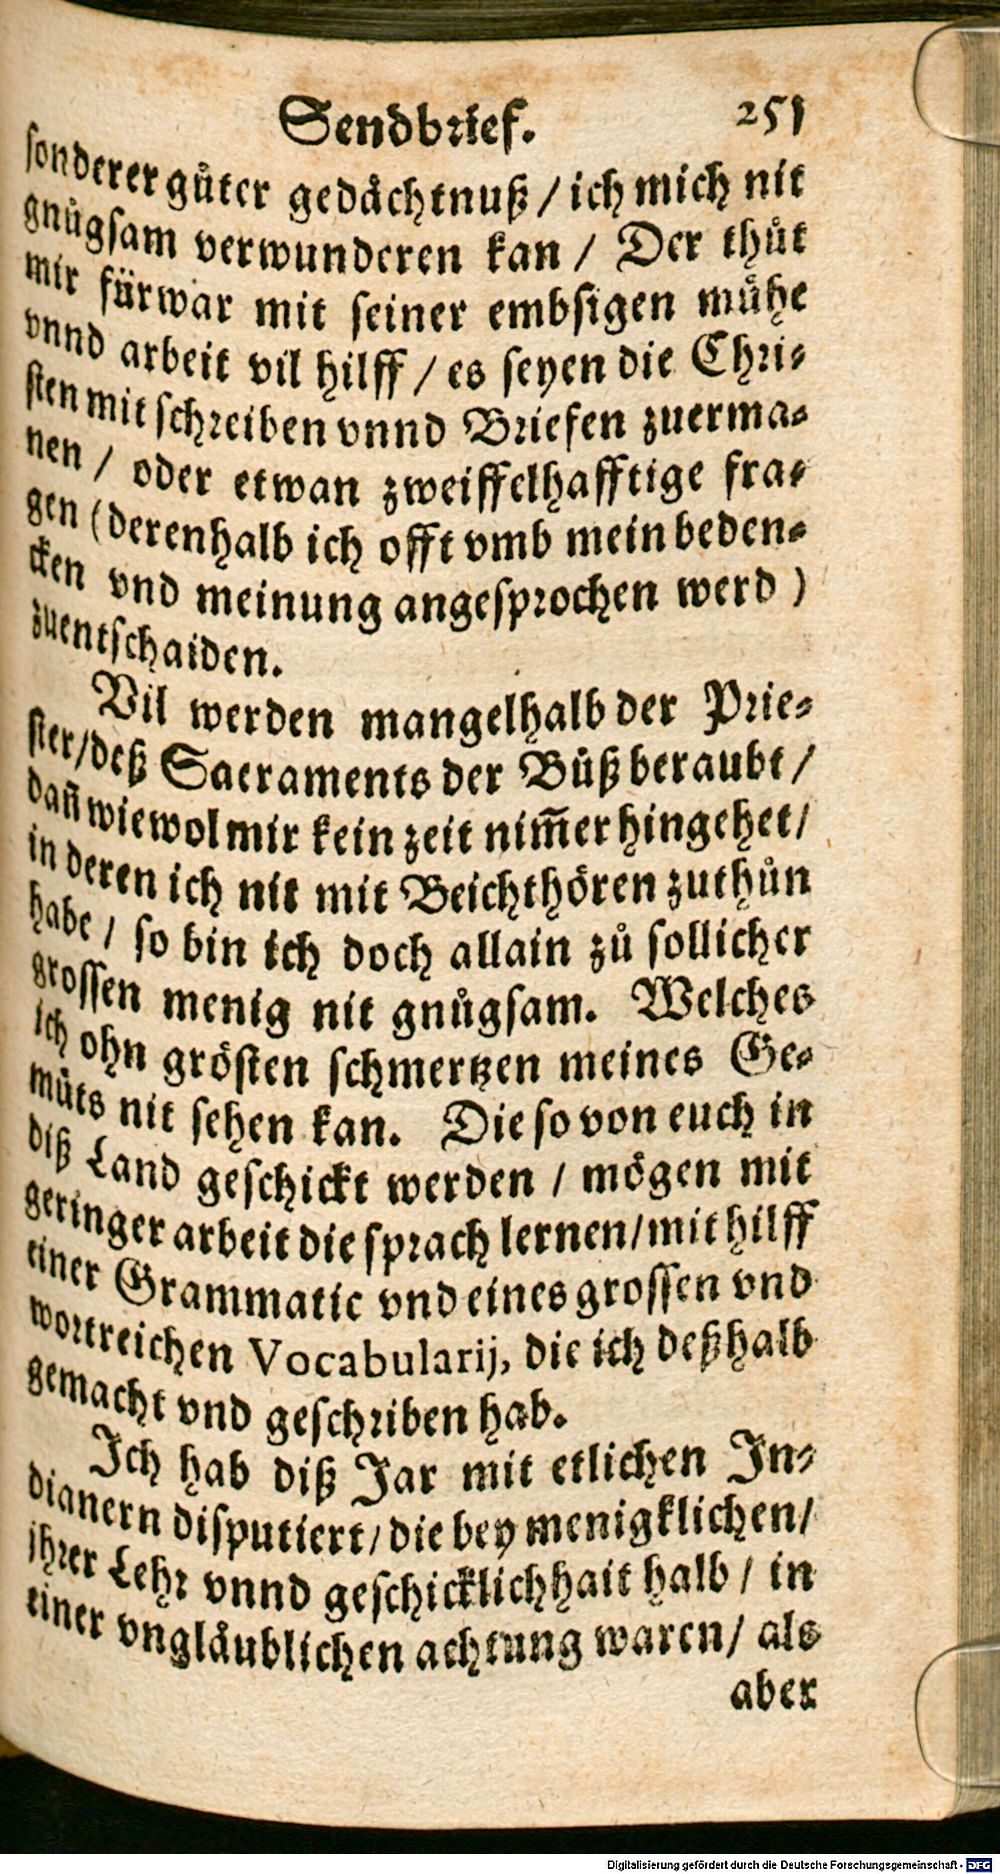 Sendbrief. 251
sonderer gůter gedåchtnuß / ich mich nit
gnůgsam verwunderen kan / Der thůt
mir fürwar mit seiner embsigen můhe
vnnd arbeit vil hilff / es seyen die Chri-
sten mit schreiben vnnd Briefen zuerma-
nen / oder etwan zweiffelhafftige fra-
gen (derenhalb ich offt vmb mein beden-
cken vnd meinung angesprochen werd )
zuentschaiden.
Vil werden mangelhalb der Prie-
ster/deß Sacraments der Bůß beraubt /
dañ wiewol mir kein zeit nim̃er hingehet/
in deren ich nit mit Beichthören zuthůn
habe / so bin ich doch allain zů sollicher
grossen menig nit gnůgsam. Welches
ich ohn grösten schmertzen meines Ge-
můts nit sehen kan. Die so von euch in
diß Land geschickt werden / mögen mit
geringer arbeit die sprach lernen/mit hilff
einer Grammatic vnd eines grossen vnd
wortreichen Vocabularij, die ich deßhalb
gemacht vnd geschriben hab.
Ich hab diß Jar mit etlichen In-
dianern disputiert/die bey menigklichen/
ihrer Lehr vnnd geschicklichhait halb / in
einer vnglåublichen achtung waren/ als
aber
Digitalisierung gefördert durch die Deutsche Forschungsgemeinschaft - DFG